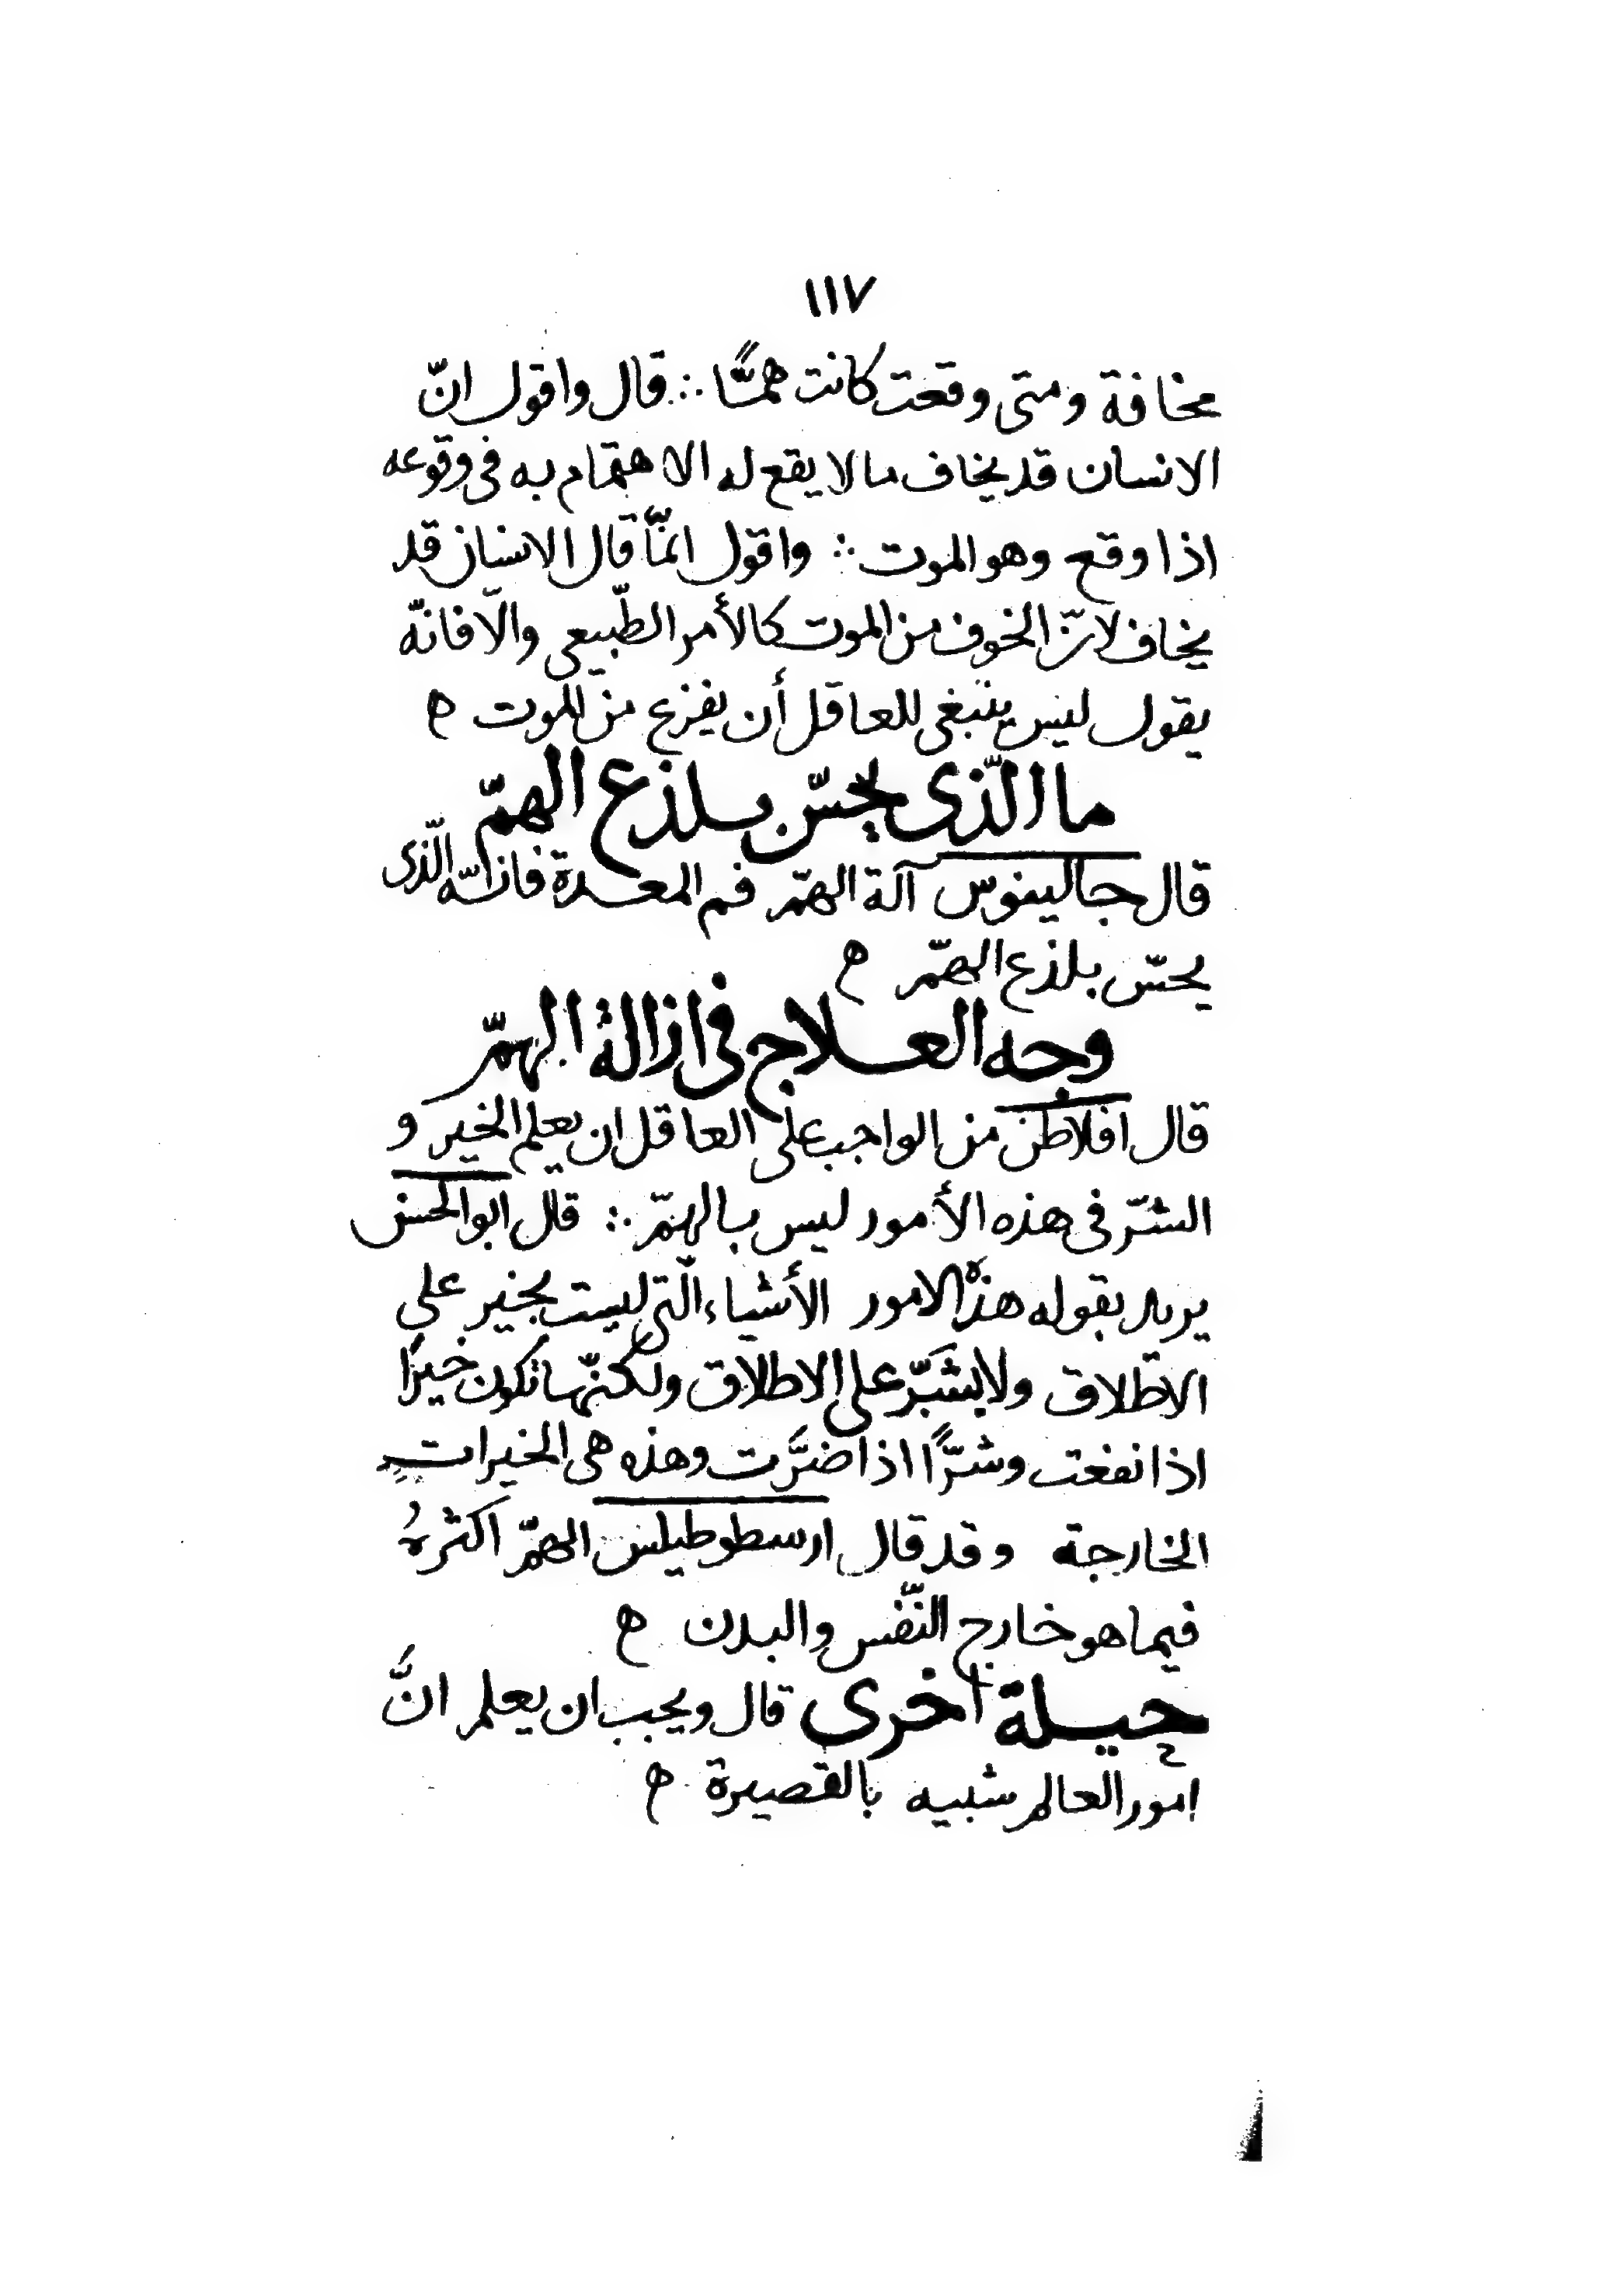 ١١٧
مخافة ومتى وقعت كانت همًّا ∴ قال واقول انّ
الانسان قد يخاف ما لا يقع له الاهتمام به فى وقوعه
اذا وقع وهو الموت ∴ واقول انّما قال الانسان قد
يخاف لانّ الخوف من الموت كالأمر الطّبيعى والّا فانّه
يقول ليس ينبغى للعاقل أن يفزع من الموت ه
ما الّذى يحسّ بلذع الهمّ
قال جالينوس آلة الهمّ فم المعدة فانّه الّذى
يحسّ بلذع الهمّ ه
وجه العلاج فى ازالة الهمّ
قال افلاطن من الواجب على العاقل ان يعلم الخير و
الشرّ فى هذه الأمور ليس بالهمّ ∴ قال ابو الحسن
يريد بقوله هذه الامور الأشياء الّتى ليست بخير على
الاطلاق ولا بشَرّ على الاطلاق ولكنّها تكون خيرًا
اذا نفعت وشرًّا اذا ضرَّت وهذه هى الخيرات
الخارجة وقد قال ارسطوطيلس الهمّ اكثرهُ
فيما هو خارج النّفس والبدن ه
حيلة اخرى قال ويجب ان يعلم انَّ
امور العالم شبيه بالقصيرة ه